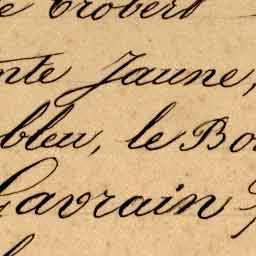 Trobert
nte Jaune,
bleu, le Bo
Gavrain